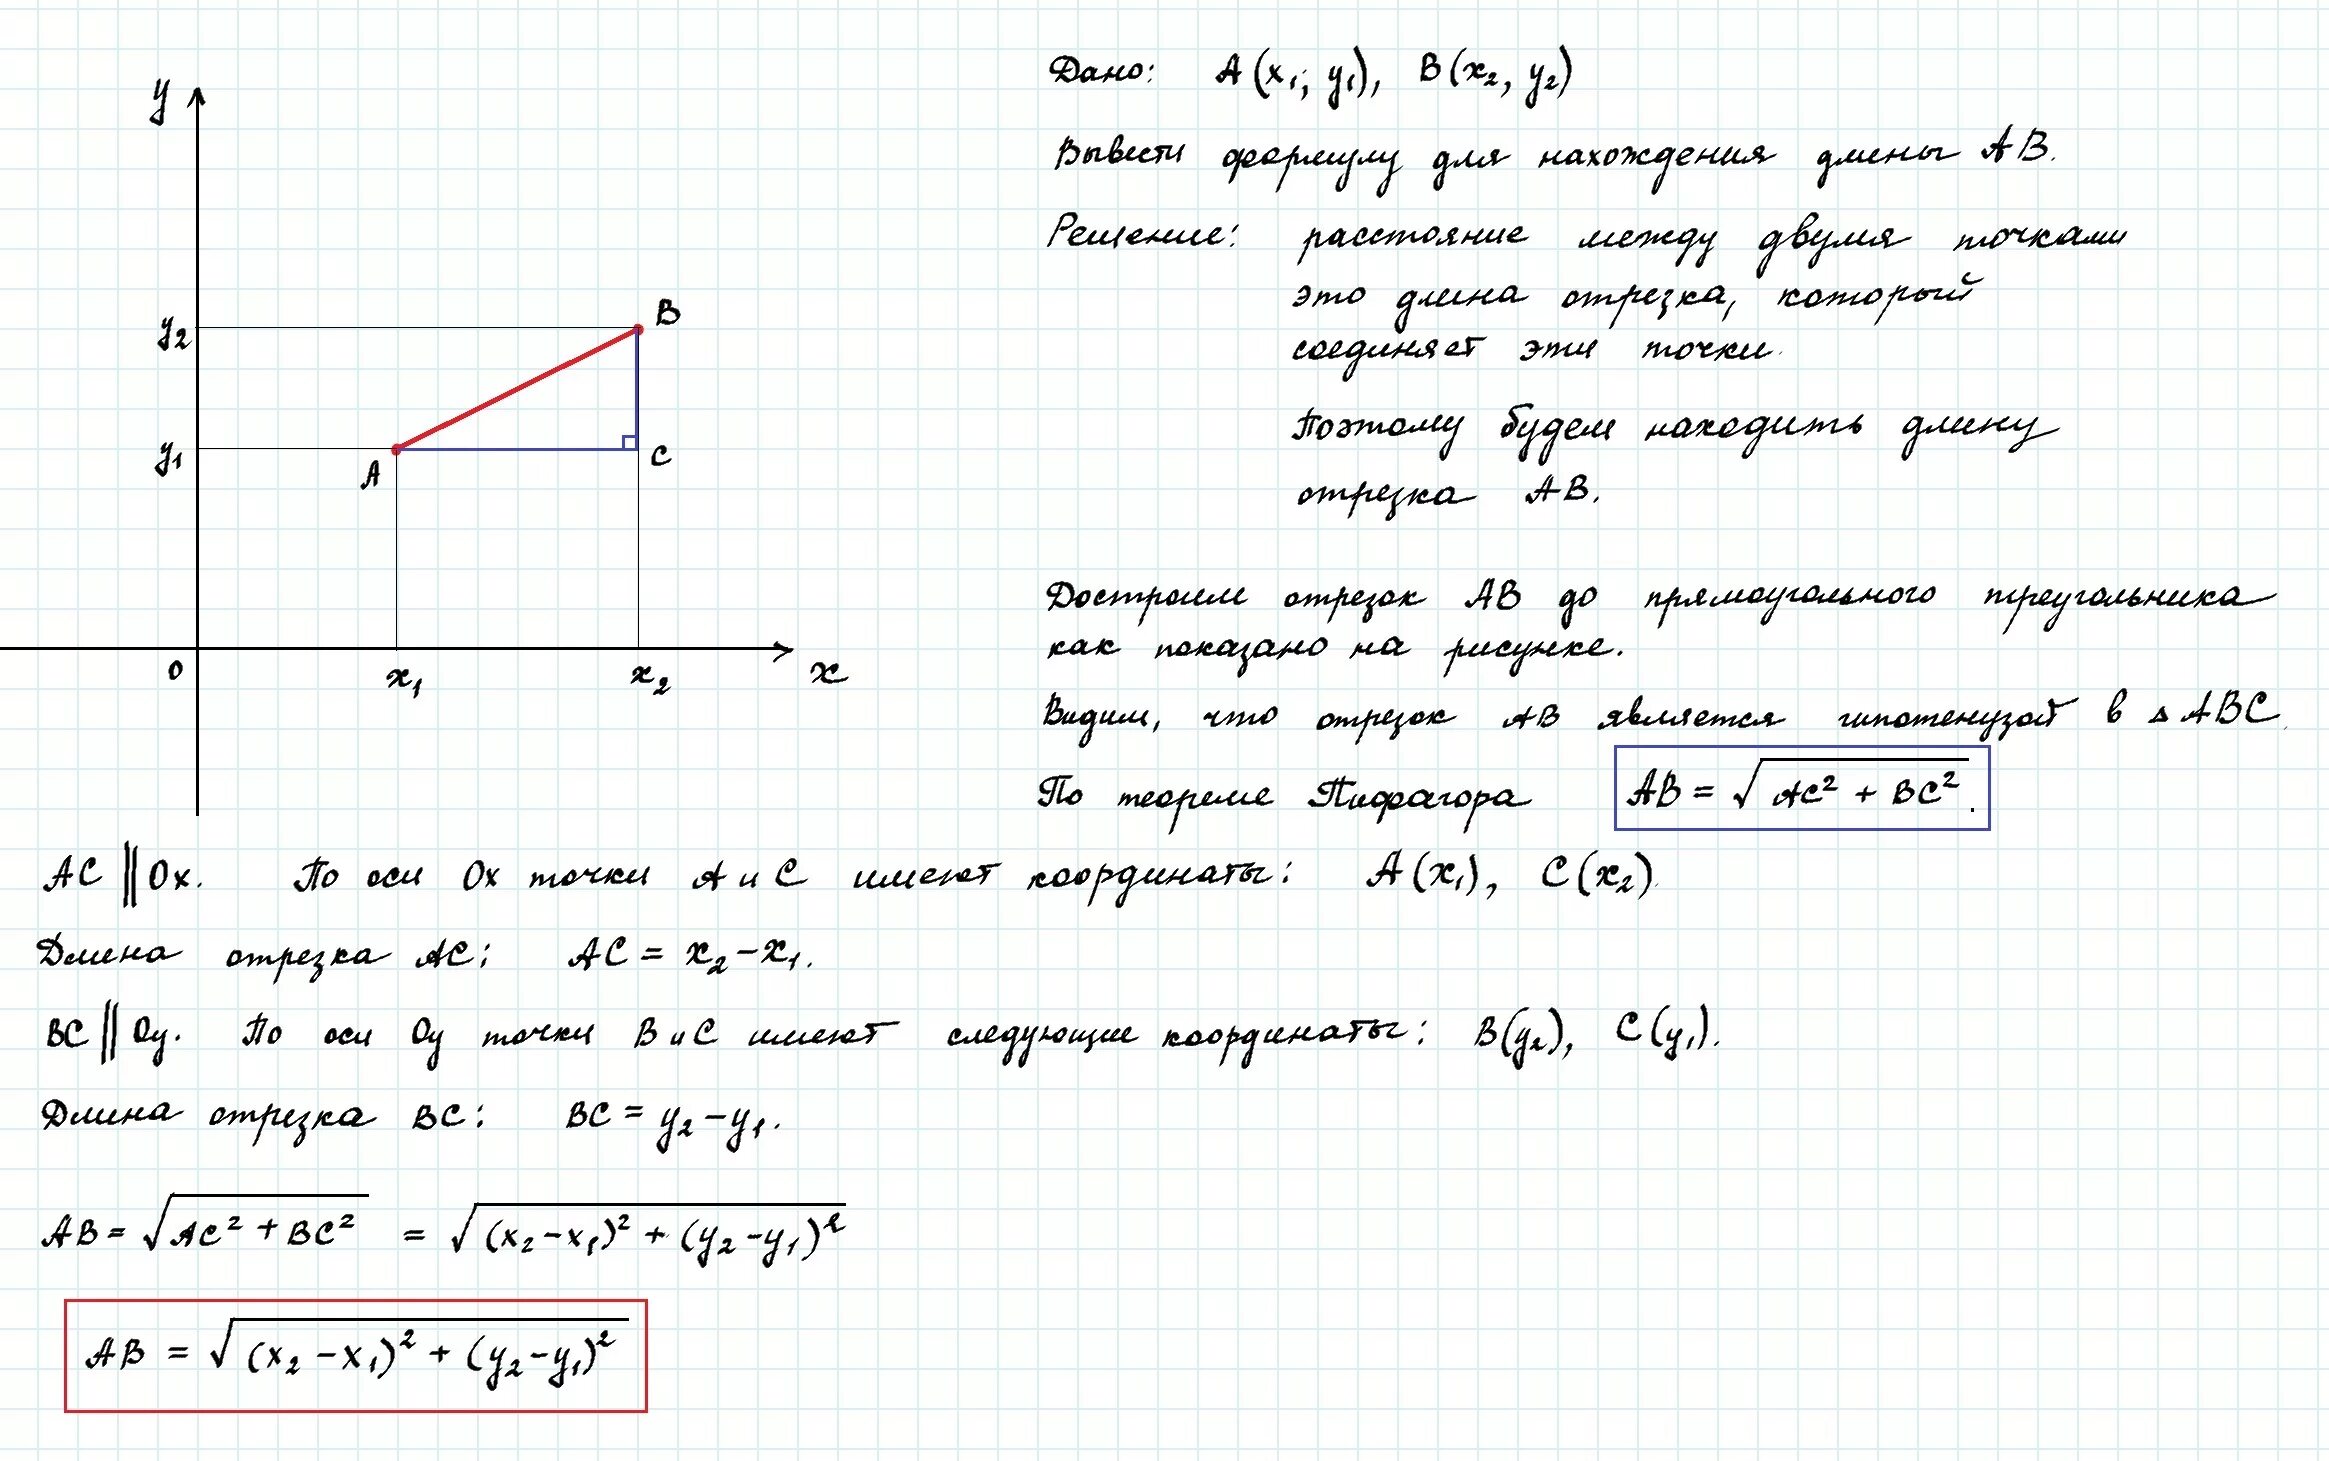 y
y₂
B
y₁
A
C
0
x₁
x₂
x
Дано: A(x₁; y₁), B(x₂, y₂)
Вывести формулу для нахождения длины AB.
Решение: расстояние между двумя точками
это длина отрезка, который
соединяет эти точки.
Поэтому будем находить длину
отрезка AB.
Достроим отрезок AB до прямоугольного треугольника
как показано на рисунке.
Видим, что отрезок AB является гипотенузой в △ABC.
По теореме Пифагора AB = √(AC² + BC²).
AC || Ox. По оси Ox точки A и C имеют координаты: A(x₁), C(x₂).
Длина отрезка AC: AC = x₂ - x₁.
BC || Oy. По оси Oy точки B и C имеют следующие координаты: B(y₂), C(y₁).
Длина отрезка BC: BC = y₂ - y₁.
AB = √(AC² + BC²) = √((x₂ - x₁)² + (y₂ - y₁)²)
AB = √((x₂ - x₁)² + (y₂ - y₁)²)